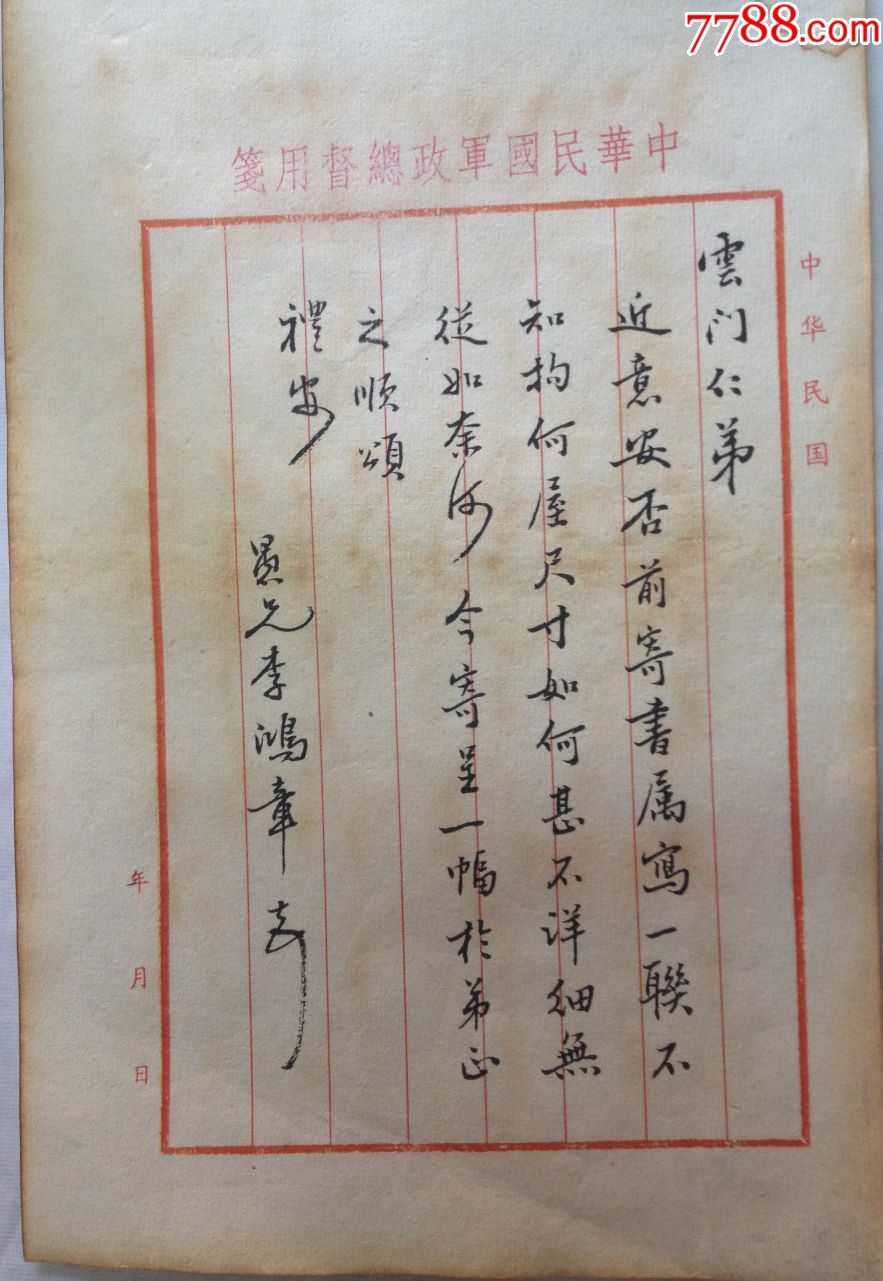 7788.com
中華民國軍政總督用箋
中华民国
雲门仁弟
近意安否前寄書属寫一聯不
知拘何屋尺寸如何甚不详细無
從如奈何今寄呈一幅於弟正
之順頌
禮安
愚兄李鴻章
年月日